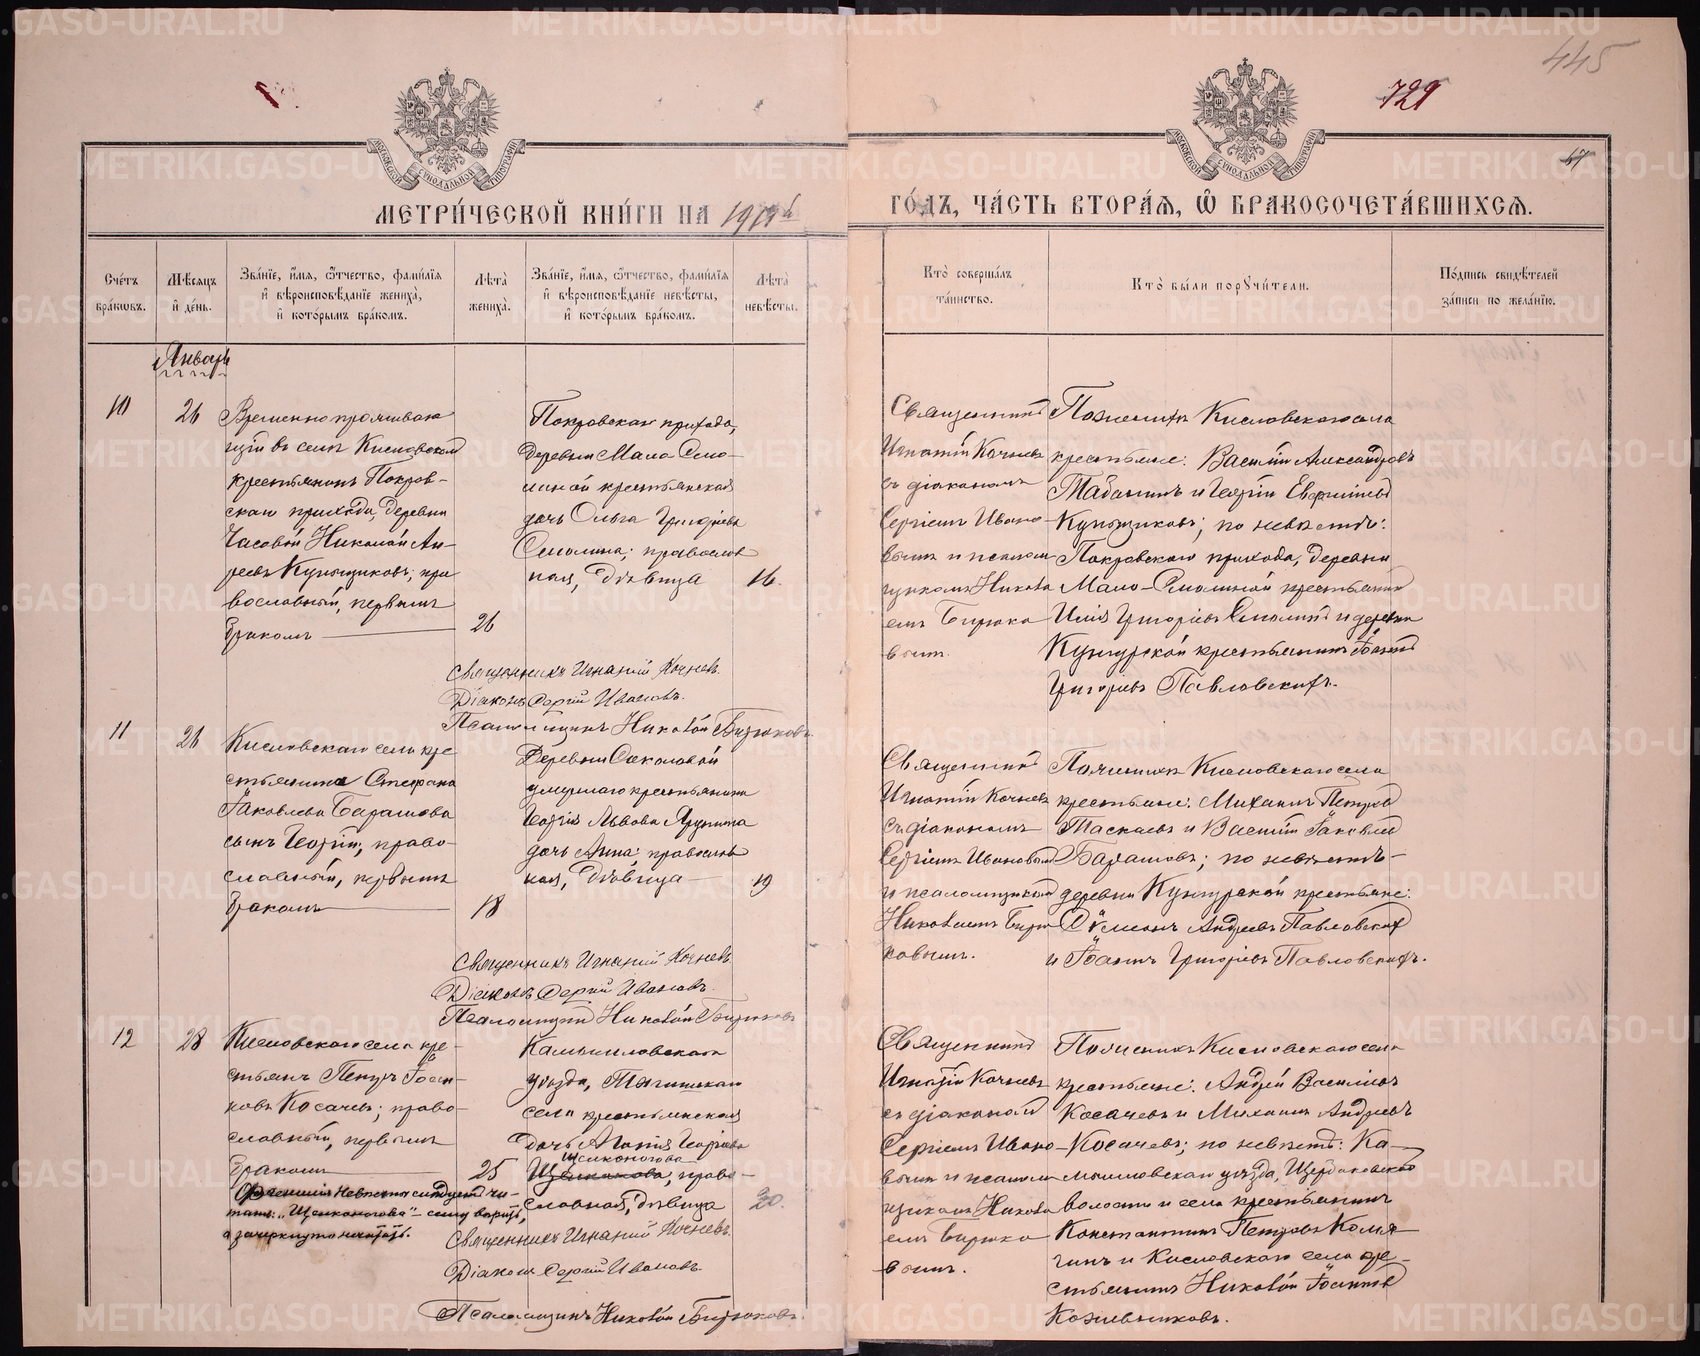 445
729
67
МЕТРИ́ЧЕСКОЙ КНИ́ГИ НА 1911й
ГО́ДЪ, ЧА́СТЬ ВТОРА́Я, Ѽ БРАКОСОЧЕТА́ВШИХСЯ.
Сче́тъ бра́кωвъ.
Мѣ́сяцъ и҆ де́нь.
Зва́нїе, и҆́мя, ѻ҆́тчество, фами́лїя
и҆ вѣроисповѣ́данїе жениха̀,
и҆ кото́рымъ бра́комъ.
Лѣта̀ жениха̀.
Зва́нїе, и҆́мя, ѻ҆́тчество, фами́лїя
и҆ вѣроисповѣ́данїе невѣ́сты,
и҆ кото́рымъ бра́комъ.
Лѣта̀ невѣ́сты.
Кто̀ соверша́лъ
та́инство.
Кто̀ бы́ли порꙋчи́тели.
По́дпись свидѣ́телей
за́писи по жела́нїю.
Январь
10
26
Временно проживаю
щій въ селѣ Кисловскомъ
крестьянинъ Покров-
скаго прихода, деревни
Часовой Николай Ан-
дреевъ Кунгщиковъ; пра
вославный, первымъ
бракомъ
26
Покровскаго прихода,
деревни Мало-Смо-
линой крестьянская
дочь Ольга Григорьева
Смолина; православ
ная, дѣвица
16.
Священникъ
Игнатій Кочневъ
съ діакономъ
Сергіемъ Ивано
вымъ и псалом
щикомъ Никола
емъ Бирюко
вымъ.
Поженихѣ Кисловскаго села
крестьяне: Василій Александровъ
Табатинъ и Георгій Евфиміевъ
по невѣстѣ:
Покровскаго прихода, деревни
Мало-Смолиной крестьянинъ
Илія Григорьевъ Смолинъ и деревни
Кунгурской крестьянинъ Іоаннъ
Григорьевъ Павловскихъ.
Священникъ Игнатій Кочневъ.
Діаконъ Сергій Ивановъ.
Псаломщикъ Николай Бирюковъ.
11
26
Кисловскаго села кре-
стьянина Стефана
Іаковлева Барашова
сынъ Георгій; право-
славный, первымъ
бракомъ
18
Деревни Соколовой
умершаго крестьянина
Георгія Львова
дочь Анна; православ
ная, дѣвица
19
Священникъ
Игнатій Кочневъ
съ діакономъ
Сергіемъ Ивановымъ
и псаломщикомъ
Николаемъ Бирю
ковымъ.
Поженихѣ Кисловскаго села
крестьяне: Михаилъ Петровъ
Таскаевъ и Василій Іаковлевъ
Барашовъ; по невѣстѣ-
деревни Кунгурской крестьяне:
Сѵмеонъ Андреевъ Павловскихъ
и Іоаннъ Григорьевъ Павловскихъ.
Священникъ Игнатій Кочневъ.
Діаконъ Сергій Ивановъ.
Псаломщикъ Николай Бирюковъ
12
28
Кисловскаго села кре-
стьянъ Петръ Іоан-
новъ Косачевъ; право-
славный, первымъ
бракомъ
25
Фамилія невѣсты слѣдуетъ чи-
тать: „Щелконогова" - сему вѣрить,
а зачеркнутое не читать.
Камышловскаго
уѣзда,
села крестьянская
дочь Георгіева
Щелконогова
право-
славная, дѣвица
20.
Священникъ
Игнатій Кочневъ
съ діакономъ
Сергіемъ Ивано
вымъ и псалом
щикомъ Никола
емъ Бирюко
вымъ.
Поженихѣ Кисловскаго села
крестьяне: Андрей Василіевъ
Косачевъ и Михаилъ Андреевъ
Косачевъ; по невѣстѣ: Ка-
мышловскаго уѣзда, Щербаковской
волости и села крестьянинъ
Константинъ Петровъ Коля
гинъ и Кисловскаго села кре-
стьянинъ Николай Іоанновъ
Кожевниковъ.
Священникъ Игнатій Кочневъ.
Діаконъ Сергій Ивановъ.
Псаломщикъ Николай Бирюковъ.
METRIKI.GASO-URAL.RU